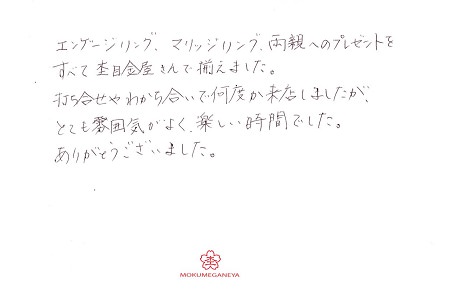 エンゲージリング、マリッジリング、両親へのプレゼントを
すべて杢目金屋さんで揃えました。
打ち合せやわかち合いで何度か来店しましたが、
とても雰囲気がよく、楽しい時間でした。
ありがとうございました。
杢
MOKUMEGANEYA